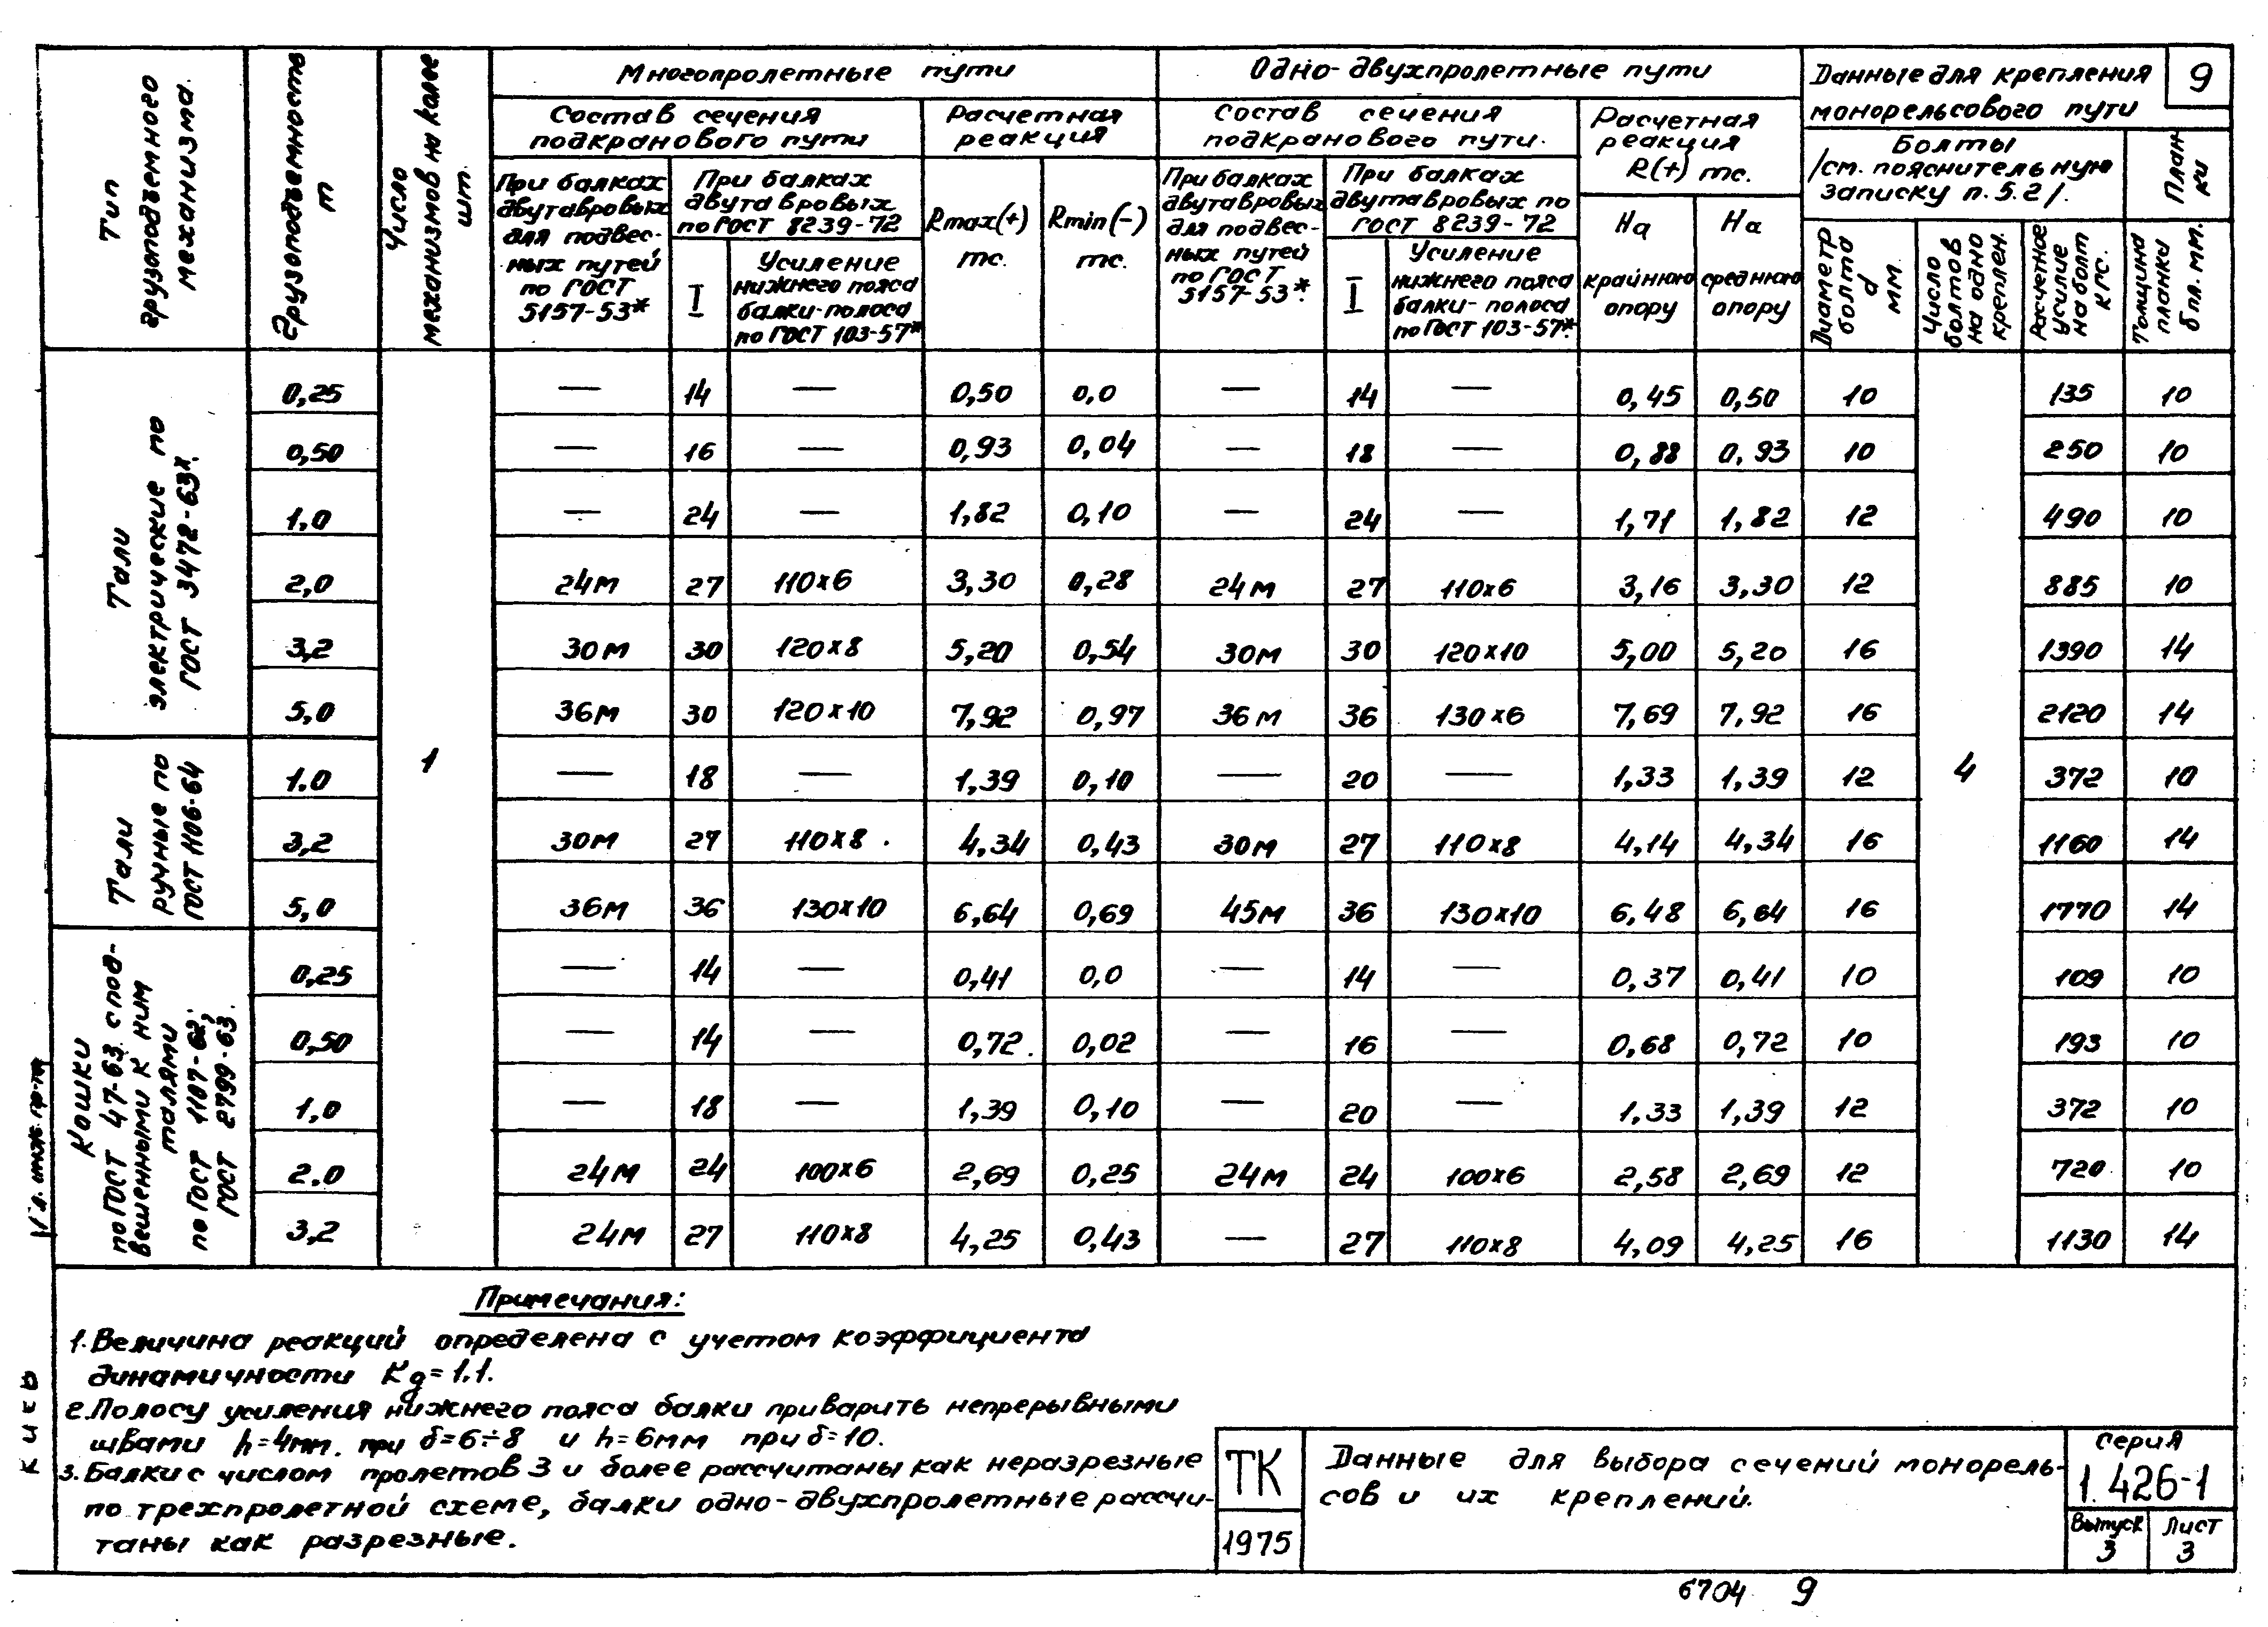 Тип грузоподъемного механизма.
Грузоподъемность т
Число механизмов на колее шт.
Многопролетные пути
Одно-двухпролетные пути
Данные для крепления монорельсового пути
9
Состав сечения подкранового пути
Расчетная реакция
Состав сечения подкранового пути.
Расчетная реакция R(+) тс.
Болты /см. пояснительную записку п.5.2/.
Планки
При балках двутавровых для подвесных путей по ГОСТ 5157-53*
При балках двутавровых по ГОСТ 8239-72
I
Усиление нижнего пояса балки-полоса по ГОСТ 103-57*
Rmax(+) тс.
Rmin(-) тс.
При балках двутавровых для подвесных путей по ГОСТ 5157-53*.
При балках двутавровых по ГОСТ 8239-72
I
Усиление нижнего пояса балки-полоса по ГОСТ 103-57*.
На крайнюю опору
На среднюю опору
Диаметр болта d мм.
Число болтов на одно креплен.
Расчетное усилие на болт кгс.
Толщина планки δ пл. мм.
Тали электрические по ГОСТ 3472-63*.
1
4
0,25 — 14 — 0,50 0,0 — 14 — 0,45 0,50 10 135 10
0,50 — 16 — 0,93 0,04 — 18 — 0,88 0,93 10 250 10
1,0 — 24 — 1,82 0,10 — 24 — 1,71 1,82 12 490 10
2,0 24М 27 110х6 3,30 0,28 24М 27 110х6 3,16 3,30 12 885 10
3,2 30М 30 120х8 5,20 0,54 30М 30 120х10 5,00 5,20 16 1390 14
5,0 36М 30 120х10 7,92 0,97 36М 36 130х6 7,69 7,92 16 2120 14
Тали ручные по ГОСТ 1106-64
1.0 — 18 — 1,39 0,10 — 20 — 1,33 1,39 12 372 10
3,2 30М 27 110х8 4,34 0,43 30М 27 110х8 4,14 4,34 16 1160 14
5,0 36М 36 130х10 6,64 0,69 45М 36 130х10 6,48 6,64 16 1770 14
Кошки по ГОСТ 47-63 с подвешенными к ним талями по ГОСТ 1107-62; ГОСТ 2799-63.
0,25 — 14 — 0,41 0,0 — 14 — 0,37 0,41 10 109 10
0,50 — 14 — 0,72 0,02 — 16 — 0,68 0,72 10 193 10
1,0 — 18 — 1,39 0,10 — 20 — 1,33 1,39 12 372 10
2.0 24М 24 100х6 2,69 0,25 24М 24 100х6 2,58 2,69 12 720 10
3,2 24М 27 110х8 4,25 0,43 — 27 110х8 4,09 4,25 16 1130 14
Примечания:
1. Величина реакций определена с учетом коэффициента
динамичности Kg=1.1.
2. Полосу усиления нижнего пояса балки приварить непрерывными
швами h=4мм. при δ=6÷8 и h=6мм при δ=10.
3. Балки с числом пролетов 3 и более рассчитаны как неразрезные
по трехпролетной схеме, балки одно-двухпролетные рассчи-
таны как разрезные.
ТК
1975
Данные для выбора сечений монорель-
сов и их креплений.
Серия
1.426-1
Выпуск
3
Лист
3
6704 9